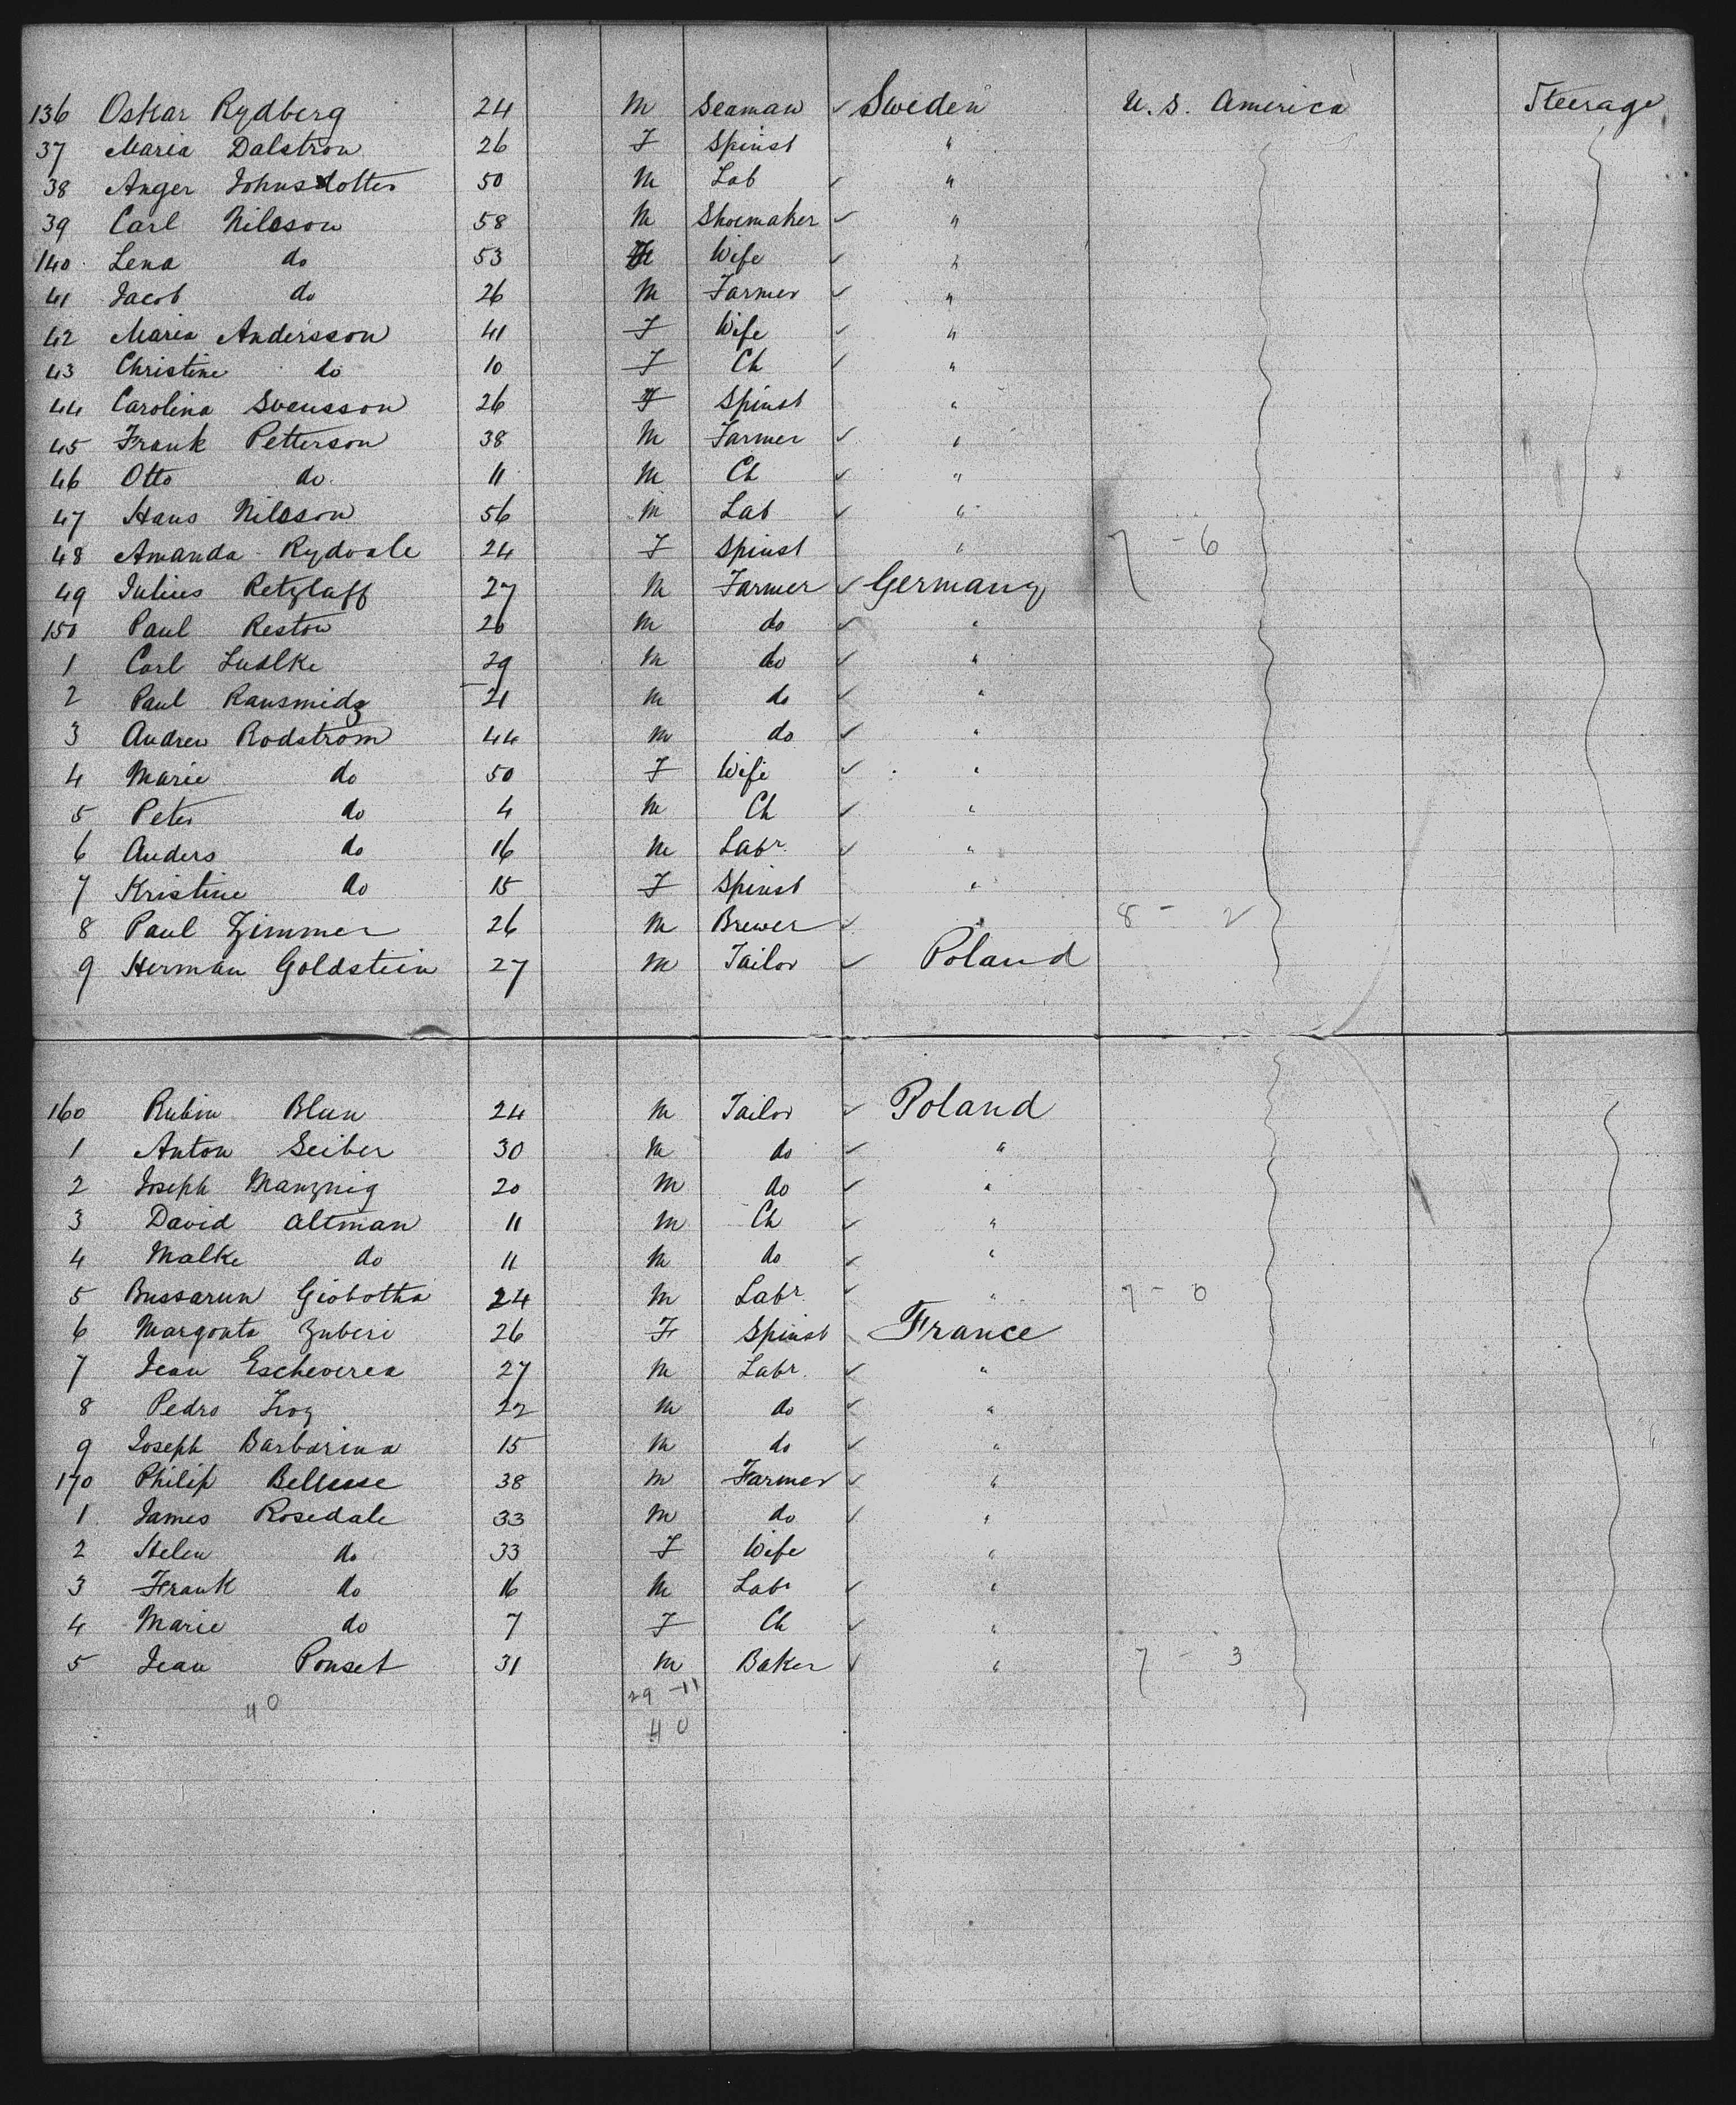 136 Oskar Rydberg 24 M Seaman ✓ Sweden U.S. America Steerage
37 Maria Dalstrom 26 F Spinst "
38 Anger Johnsdotter 50 M Lab ✓ "
39 Carl Nilsson 58 M Shoemaker ✓ "
140 Lena do 53 F Wife ✓ "
41 Jacob do 26 M Farmer ✓ "
42 Maria Andersson 41 F Wife ✓ "
43 Christine do 10 F Ch ✓ "
44 Carolina Svensson 26 F Spinst "
45 Frank Petterson 38 M Farmer ✓ "
46 Otto do 11 M Ch ✓ "
47 Hans Nilsson 56 M Lab ✓ "
48 Amanda Rydvale 24 F Spinst " 7 - 6
49 Julius Retzlaff 27 M Farmer ✓ Germany
150 Paul Reston 26 M do ✓ "
1 Carl Ludlke 29 M do ✓ "
2 Paul Ransmidz 21 M do ✓ "
3 Andrew Rodstrom 44 M do ✓ "
4 Marie do 50 F Wife ✓ "
5 Peter do 4 M Ch ✓ "
6 Anders do 16 M Labr ✓ "
7 Kristine do 15 F Spinst "
8 Paul Zimmer 26 M Brewer ✓ " 8 - 2
9 Herman Goldstein 27 M Tailor ✓ Poland
160 Rubin Blun 24 M Tailor ✓ Poland
1 Anton Seiber 30 M do ✓ "
2 Joseph Manznig 20 M do ✓ "
3 David Altman 11 M Ch ✓ "
4 Malke do 11 M do ✓ "
5 Bussarun Giobotha 24 M Labr ✓ " 7 - 0
6 Margonta Zuberi 26 F Spinst France
7 Jean Escheverea 27 M Labr ✓ "
8 Pedro 22 M do ✓ "
9 Joseph Barbarina 15 M do ✓ "
170 Philip 38 M Farmer ✓ "
1 James Rosedale 33 M do ✓ "
2 Helen do 33 F Wife "
3 Frank do 16 M Labr ✓ "
4 Marie do 7 F Ch ✓ "
5 Jean Ponset 31 M Baker ✓ " 7 - 3
40 29 - 11
40